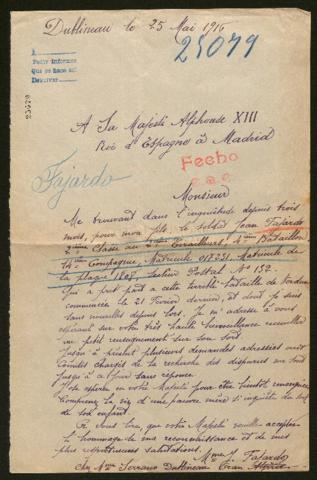 Dublineau le 25 Mai 1916
25079
A
Pedir informes
Que se hace así
Devolver
25079
A Sa Majesté Alphonse XIII
Roi d'Espagne à Madrid
Fecho
Fajardo
Monsieur
Me trouvant dans l'inquiétude depuis trois
mois, pour mon fils, le soldat Jean Fajardo
2ème Classe au 2ème Tirailleurs, 4ème Bataillon
14ème Compagnie, Matricule
la plaque 1808, Secteur Postal No 132.
qui a pris part à cette terrible bataille de Verdun
commencée le 21 Février dernier, et dont je suis
sans nouvelles depuis lors. Je m'adresse à vous
espérant sur votre très haute bienveillance recueillir
un petit renseignement sur son sort
Jusqu'à présent plusieurs demandes adressées aux
Comités chargés de la recherche des disparus sont
jusqu'à ce jour sans réponse.
J'ose espérer en votre Majesté pour être bientôt renseignée
Comprenez la vie d'une pauvre mère si inquiète du sort
de son enfant.
votre Majesté veuille accepter
l'hommage de ma reconnaissance et de mes
plus respectueuses salutations.
Mme J. Fajardo
chez Mme Serrano Dublineau Oran Algérie